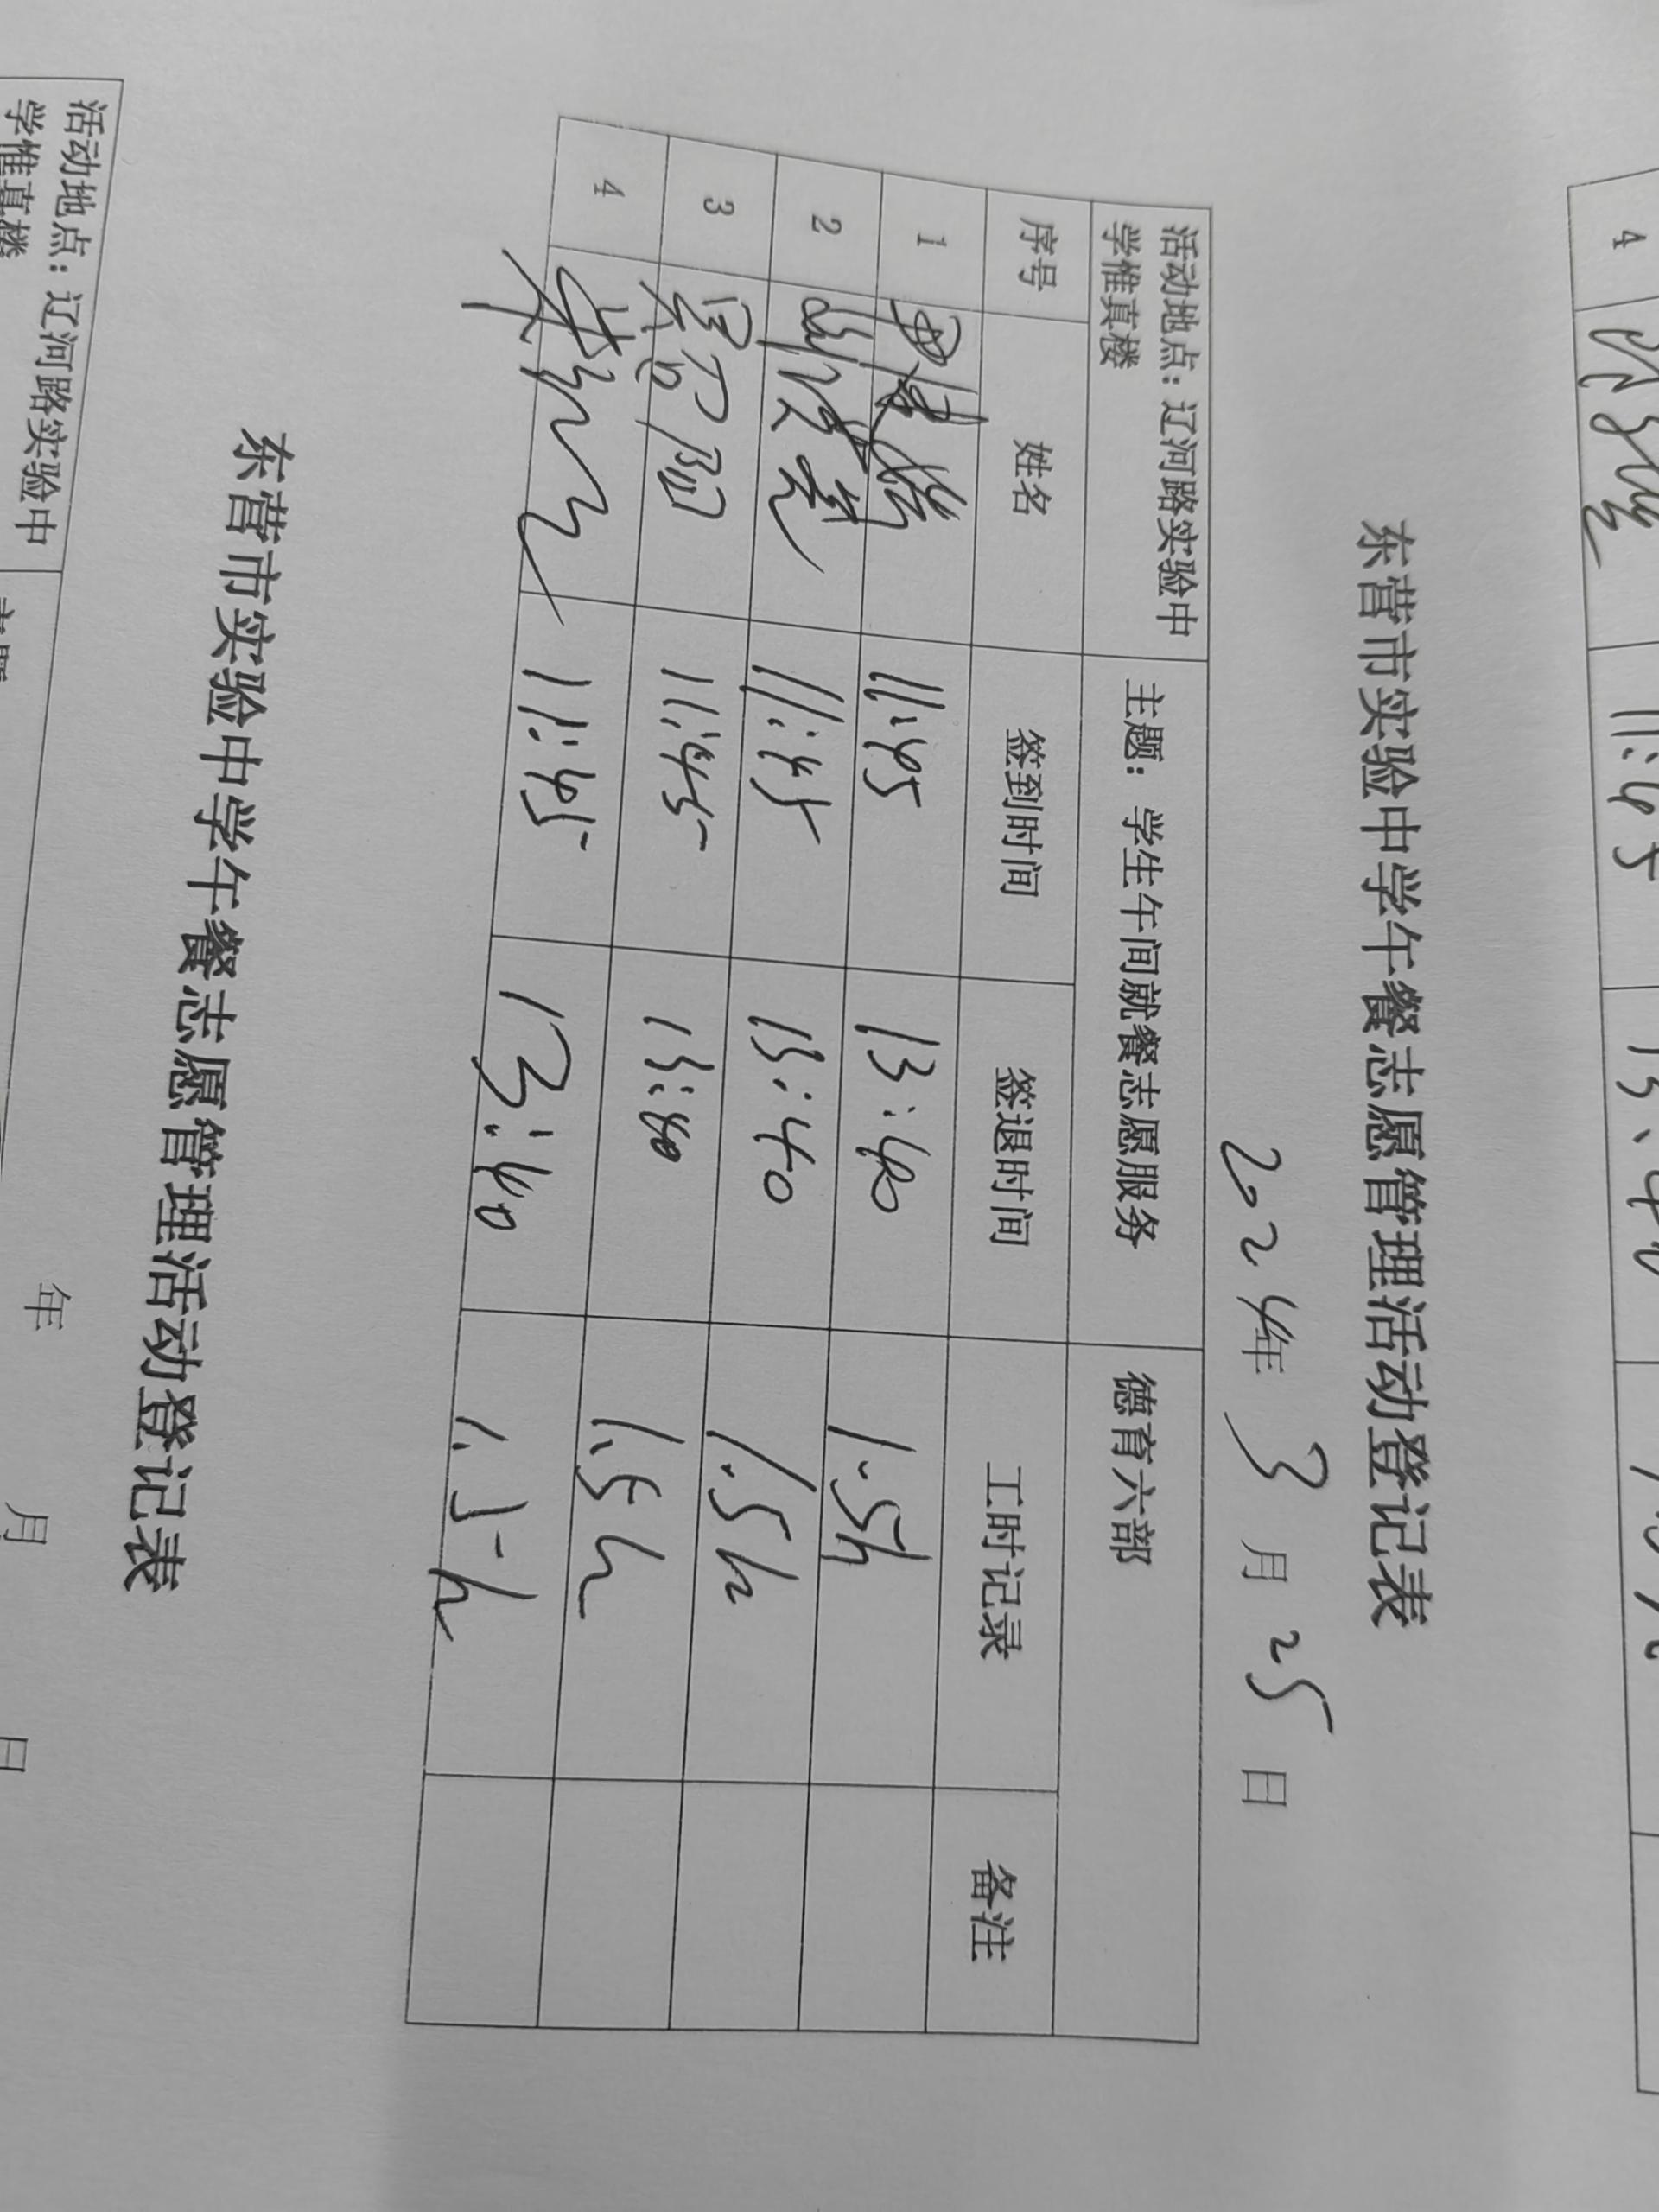 4
11:45
东营市实验中学午餐志愿管理活动登记表
2024年 3 月 25 日
活动地点：辽河路实验中学惟真楼 主题：学生午间就餐志愿服务 德育六部
序号 姓名 签到时间 签退时间 工时记录 备注
1 11:45 13:40 1.5h
2 11:45 13:40 1.5h
3 11:45 13:40 1.5h
4 11:45 13:40 1.5h
东营市实验中学午餐志愿管理活动登记表
年 月 日
活动地点：辽河路实验中
学惟真楼